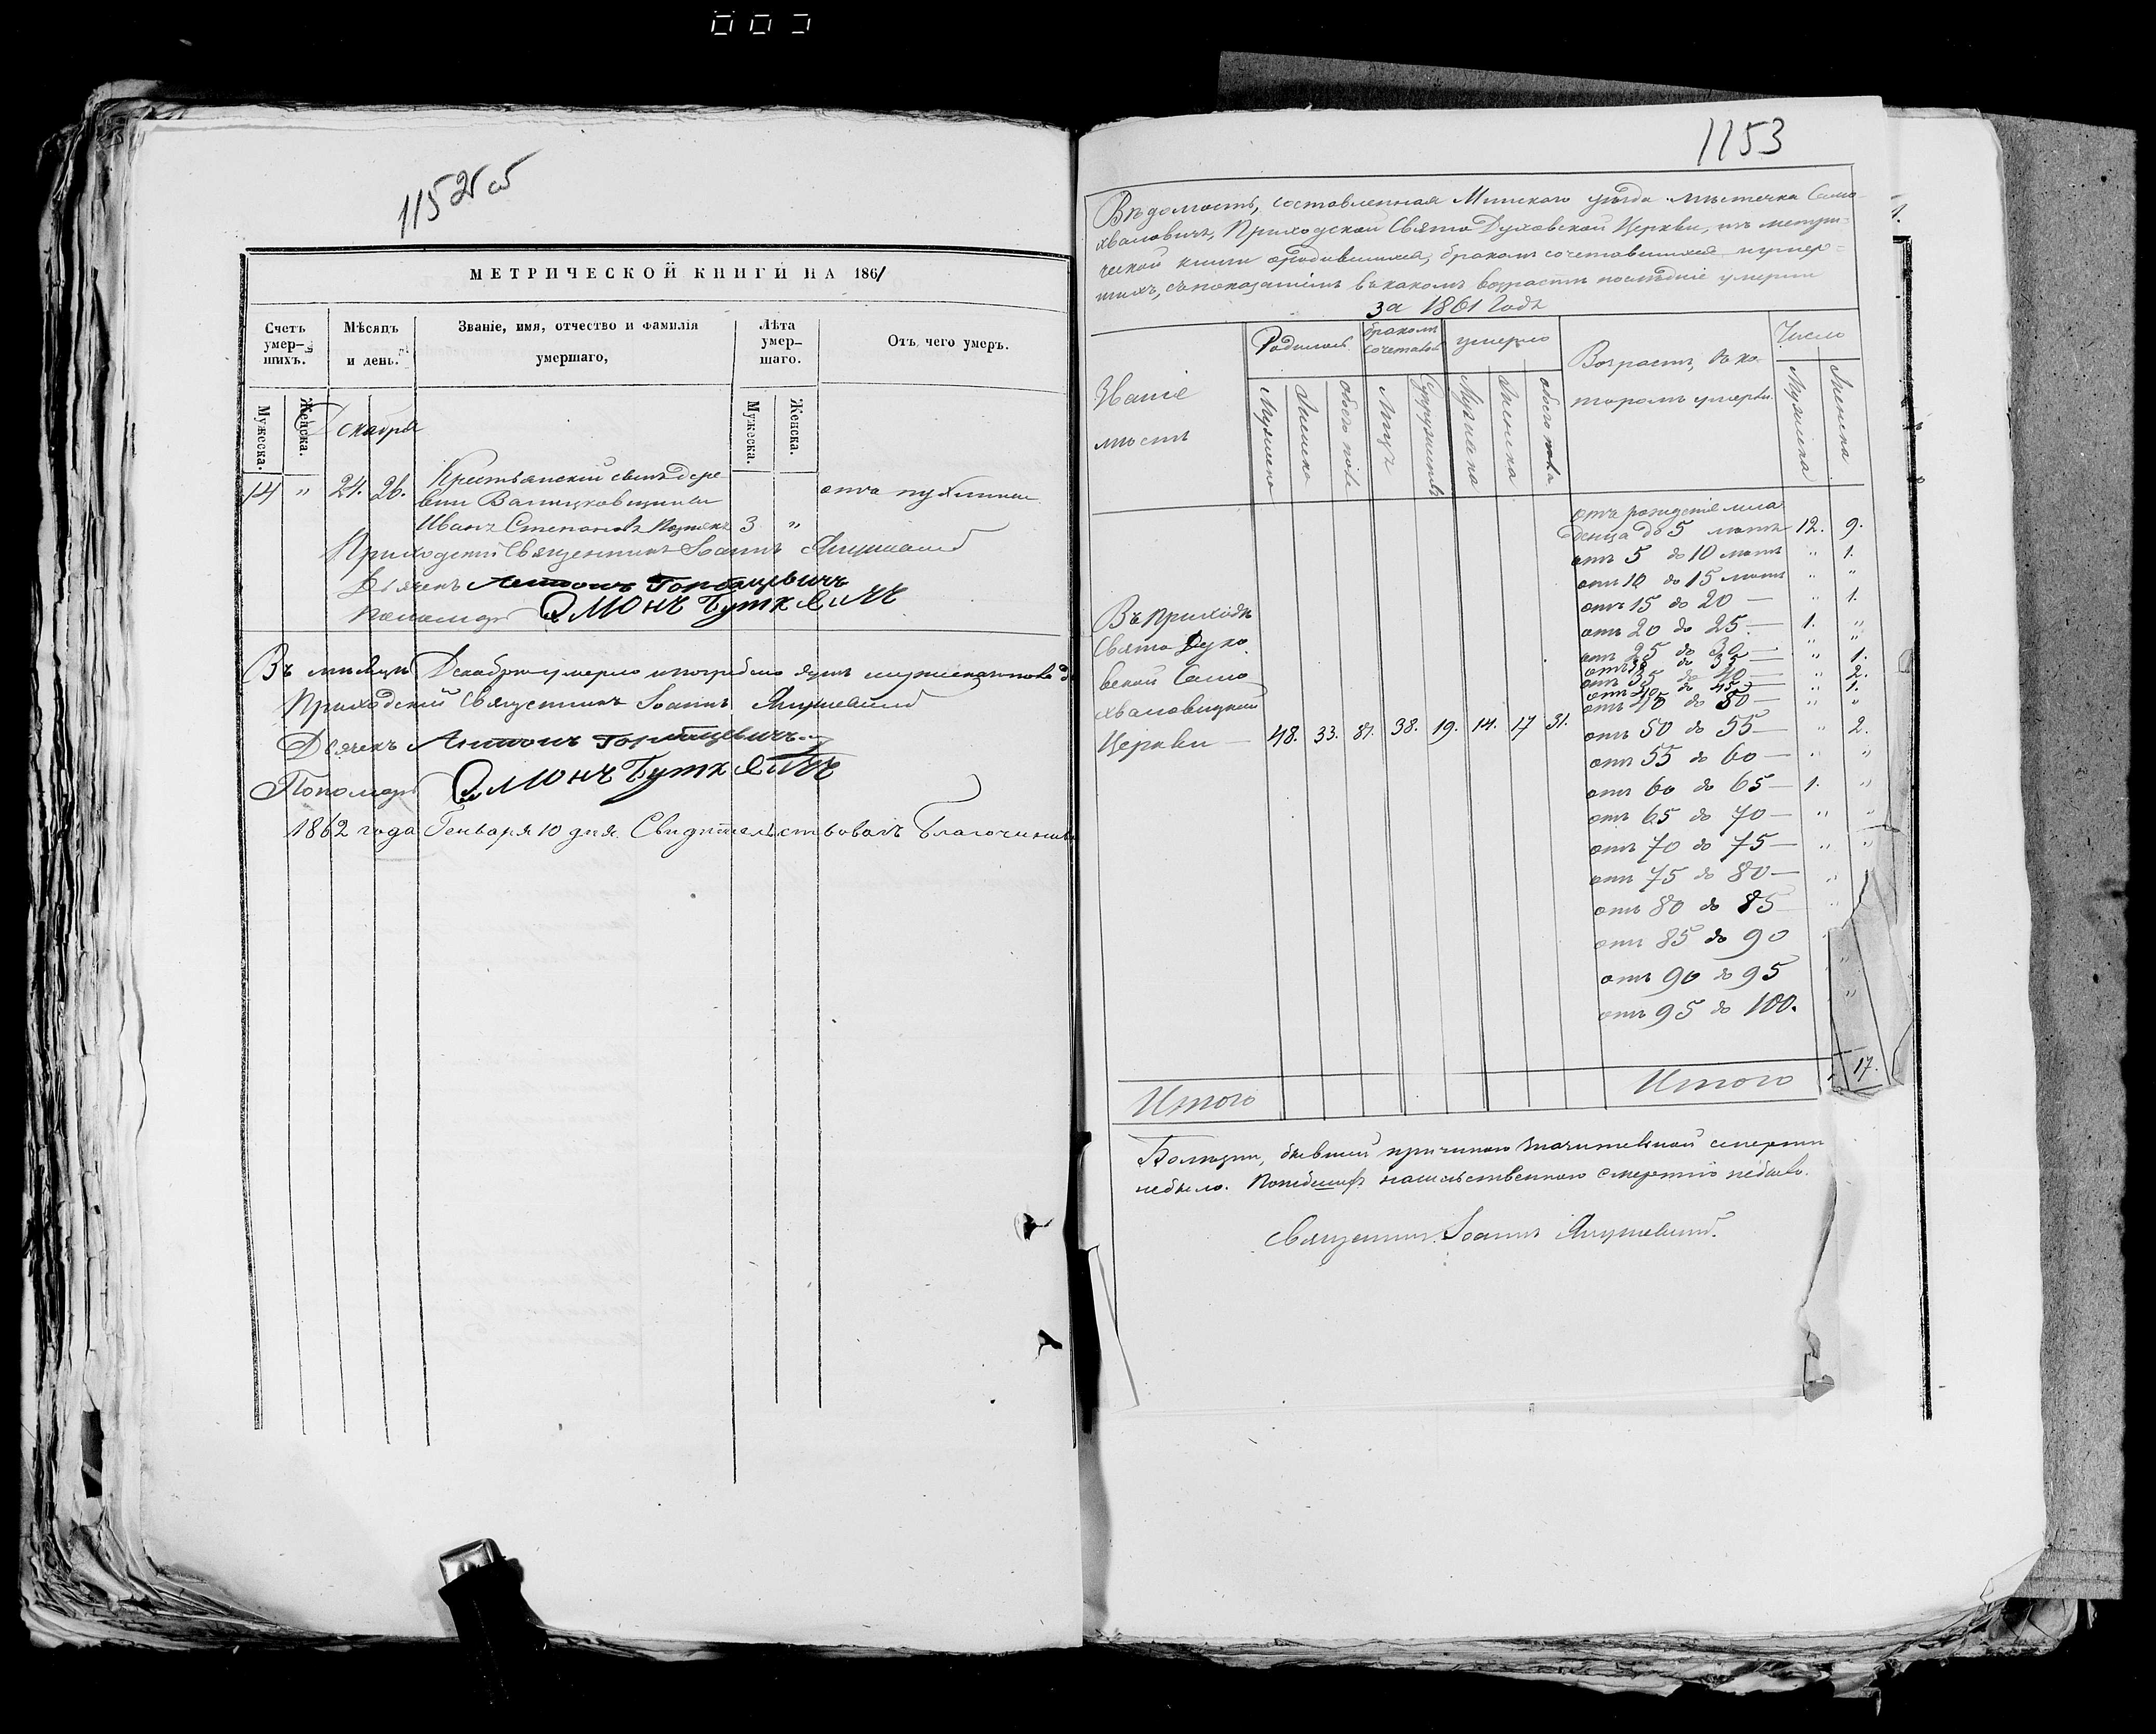 1152 об
МЕТРИЧЕСКОЙ КНИГИ НА 1861
Счетъ умер-шихъ.
Мѣсяцъ и день.
Званіе, имя, отчество и фамилія умершаго,
Лѣта умер-шаго.
Отъ чего умеръ.
Мужеска.
Женска.
Мужеска.
Женска.
Декабрь
14 " 24. 26. Крестьянскій сынъ дере-
вни
Иванъ Степановъ 3 "
отъ пухлины
Приходскій Священникъ Іоаннъ Янушевичъ
Дьячекъ Антонъ Горбацевичъ
Пономарь Симонъ Буткевичъ
Въ мѣсяцѣ Декабрѣ умерло и погребено душъ мужеска пола
Приходскій Священникъ Іоаннъ Янушевичъ
Дьячекъ Антонъ Горбацевичъ
Пономарь Симонъ Буткевичъ
1862 года Генваря 10 дня. Свидѣтельствовалъ Благочинный
1153
Вѣдомость, составленная Минскаго уѣзда мѣстечка Само-
хваловичъ, Приходской Свято Духовской Церкви, изъ метри-
ческой книги о родившихся, бракомъ сочетавшихся и умер-
шихъ, съ показаніемъ въ какомъ возрастѣ послѣдніе умерли
за 1861 годъ
Званіе мѣстъ
Родилось
бракомъ сочеталось
умерло
Возрастъ, въ ко-
торомъ умерли
Число
Мужеска
Женска
обоего пола
Лицъ
Супружествъ
Мужеска
Женска
обоего пола
Мужеска
Женска
отъ рожденія мла
денца до 5 лѣтъ 12. 9.
отъ 5 до 10 лѣтъ " 1.
отъ 10 до 15 лѣтъ " "
отъ 15 до 20 — " 1.
отъ 20 до 25 — 1. "
отъ 25 до 30 — " "
отъ 30 до 35 — " 1.
отъ 35 до 40 — " 2.
отъ 40 до 45 — " 1.
отъ 45 до 50 — " "
Въ приходѣ
Свято Духо
вской Само
хваловицкой
Церкви — 48. 33. 81. 38. 19. 14. 17 31.
отъ 50 до 55 — " 2.
отъ 55 до 60 — " "
отъ 60 до 65 — 1. "
отъ 65 до 70 — " "
отъ 70 до 75 — " "
отъ 75 до 80 — "
отъ 80 до 85 — "
отъ 85 до 90
отъ 90 до 95
отъ 95 до 100.
Итого
Итого 17.
Болѣзни, бывшей причиною значительной смерти
небыло. Погибшихъ насильственною смертію небыло.
Священникъ Іоаннъ Янушевичъ.